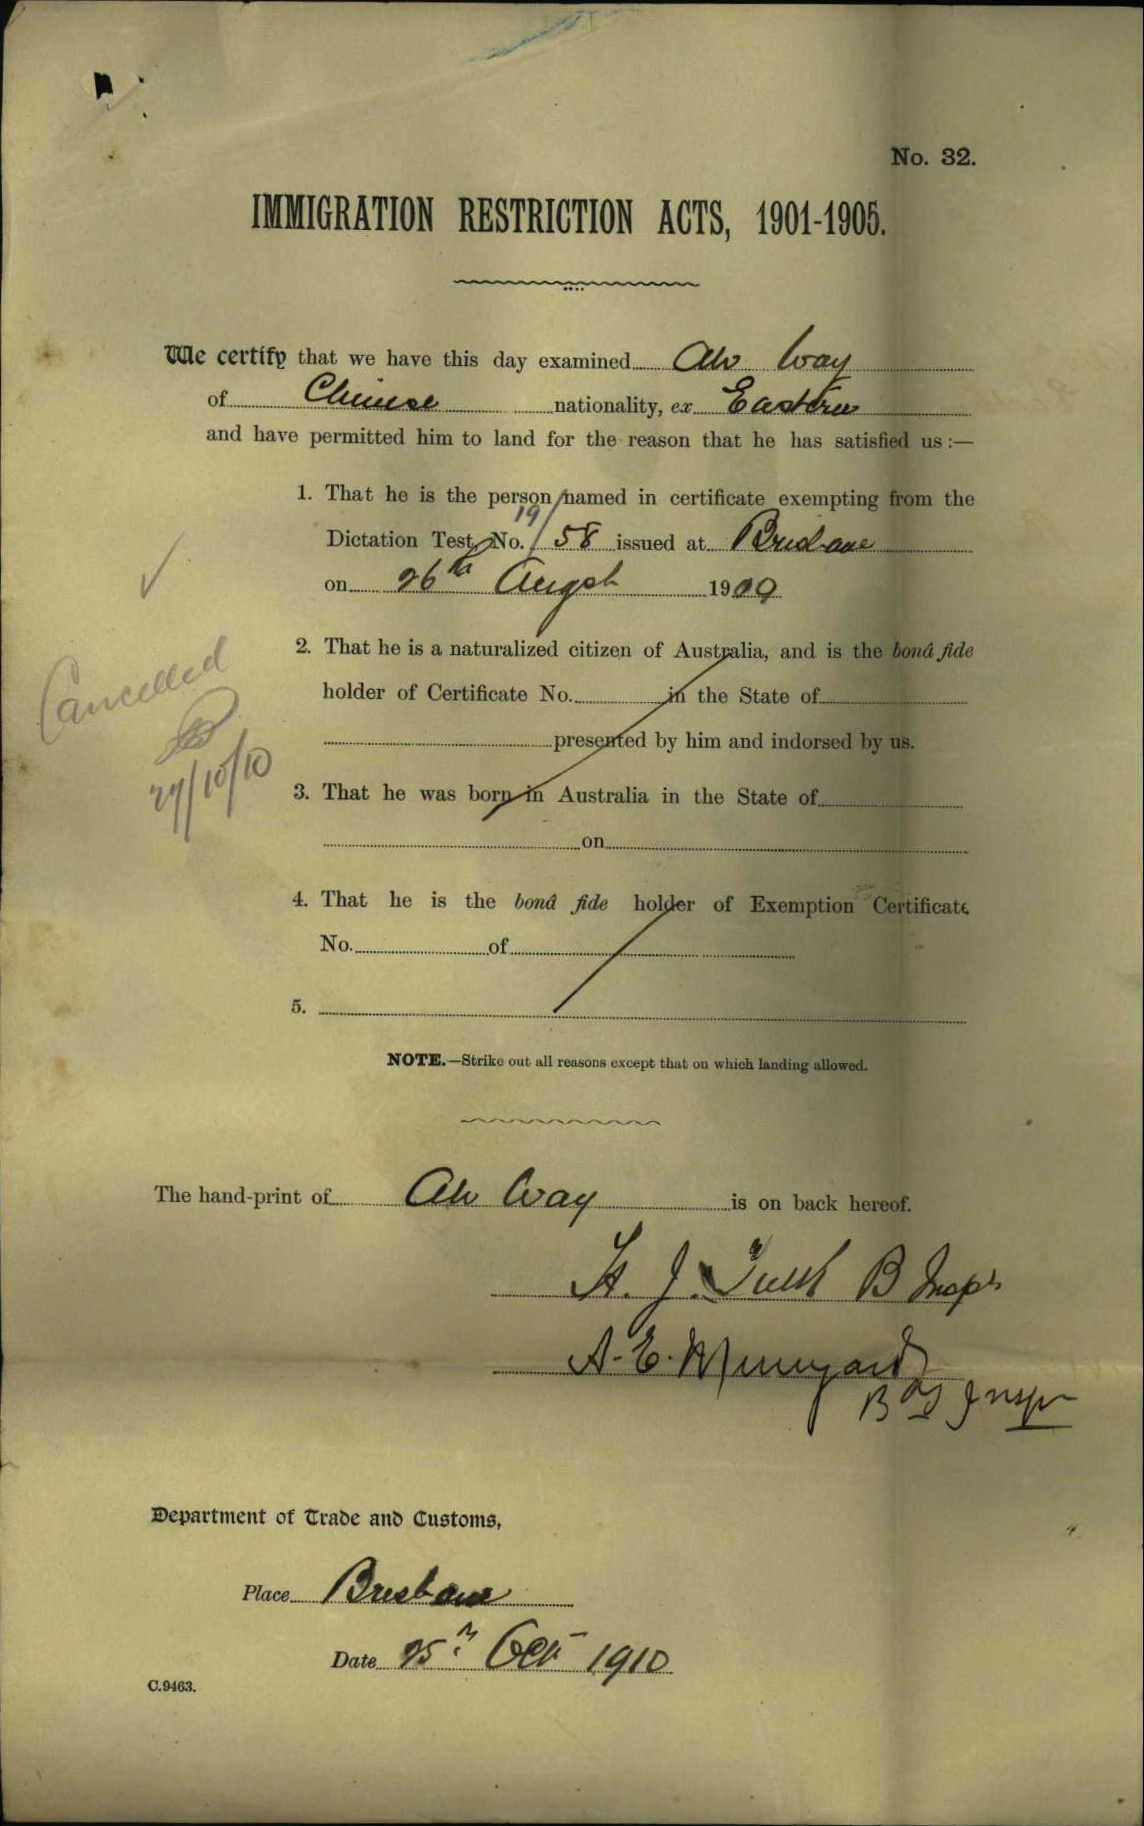 No. 32.
IMMIGRATION RESTRICTION ACTS, 1901-1905.
We certify that we have this day examined Ah Way
of Chinese nationality, ex Eastern
and have permitted him to land for the reason that he has satisfied us :—
1. That he is the person named in certificate exempting from the
Dictation Test, No. 19/58 issued at Brisbane
on 26th Augst 1909
2. That he is a naturalized citizen of Australia, and is the bonâ fide
holder of Certificate No. in the State of
presented by him and indorsed by us.
Cancelled
27/10/10
3. That he was born in Australia in the State of
on
4. That he is the bonâ fide holder of Exemption Certificate
No. of
5.
NOTE.—Strike out all reasons except that on which landing allowed.
The hand-print of Ah Way is on back hereof.
H. J. B Inspr
A. E.
Inspr
Department of Trade and Customs,
Place Brisbane
Date 25th Oct 1910
C.9463.